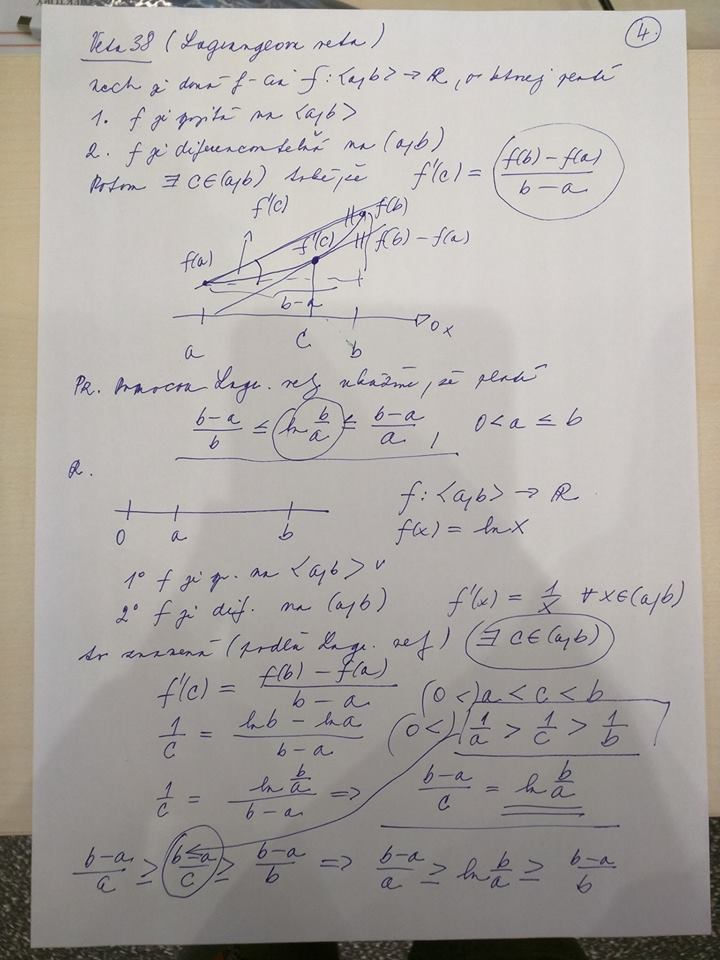 4.
Veta 38 (Lagrangeova veta)
Nech je daná f-cia f: <a,b> → R, o ktorej platí
1. f je spojitá na <a,b>
2. f je diferencovateľná na (a,b)
Potom ∃ c∈(a,b) také, že f'(c) = (f(b) − f(a))/(b − a)
f'(c) f(b)
f(a) f'(c) f(b) − f(a)
b−a
a c b o x
Pr. Pomocou Lagr. vety ukážme, že platí
(b−a)/b ≤ ln b/a ≤ (b−a)/a, 0 < a ≤ b
R.
0 a b f: <a,b> → R
f(x) = ln x
1° f je sp. na <a,b> ✓
2° f je dif. na (a,b) f'(x) = 1/x ∀x∈(a,b)
to znamená (podľa Lagr. vety) ∃ c∈(a,b)
f'(c) = (f(b) − f(a))/(b − a) (0 <) a < c < b
1/c = (ln b − ln a)/(b − a) (0 <) 1/a > 1/c > 1/b
1/c = (ln b/a)/(b − a) ⇒ (b−a)/c = ln b/a
(b−a)/a ≥ (b−a)/c ≥ (b−a)/b ⇒ (b−a)/a ≥ ln b/a ≥ (b−a)/b